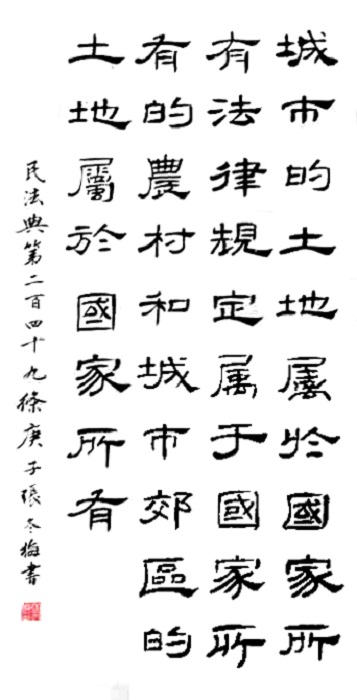 城市的土地屬於國家所
有法律規定属于國家所
有的農村和城市郊區的
土地屬於國家所有
民法典第二百四十九條庚子張冬梅書